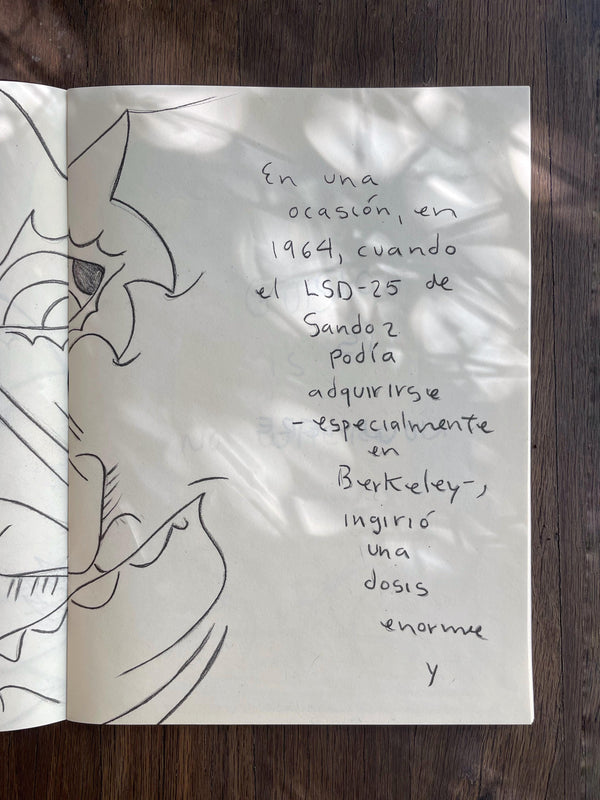 En una
ocasión, en
1964, cuando
el LSD-25 de
Sandoz
podía
adquirirse
-especialmente
en
Berkeley-,
ingirió
una
dosis
enorme
y